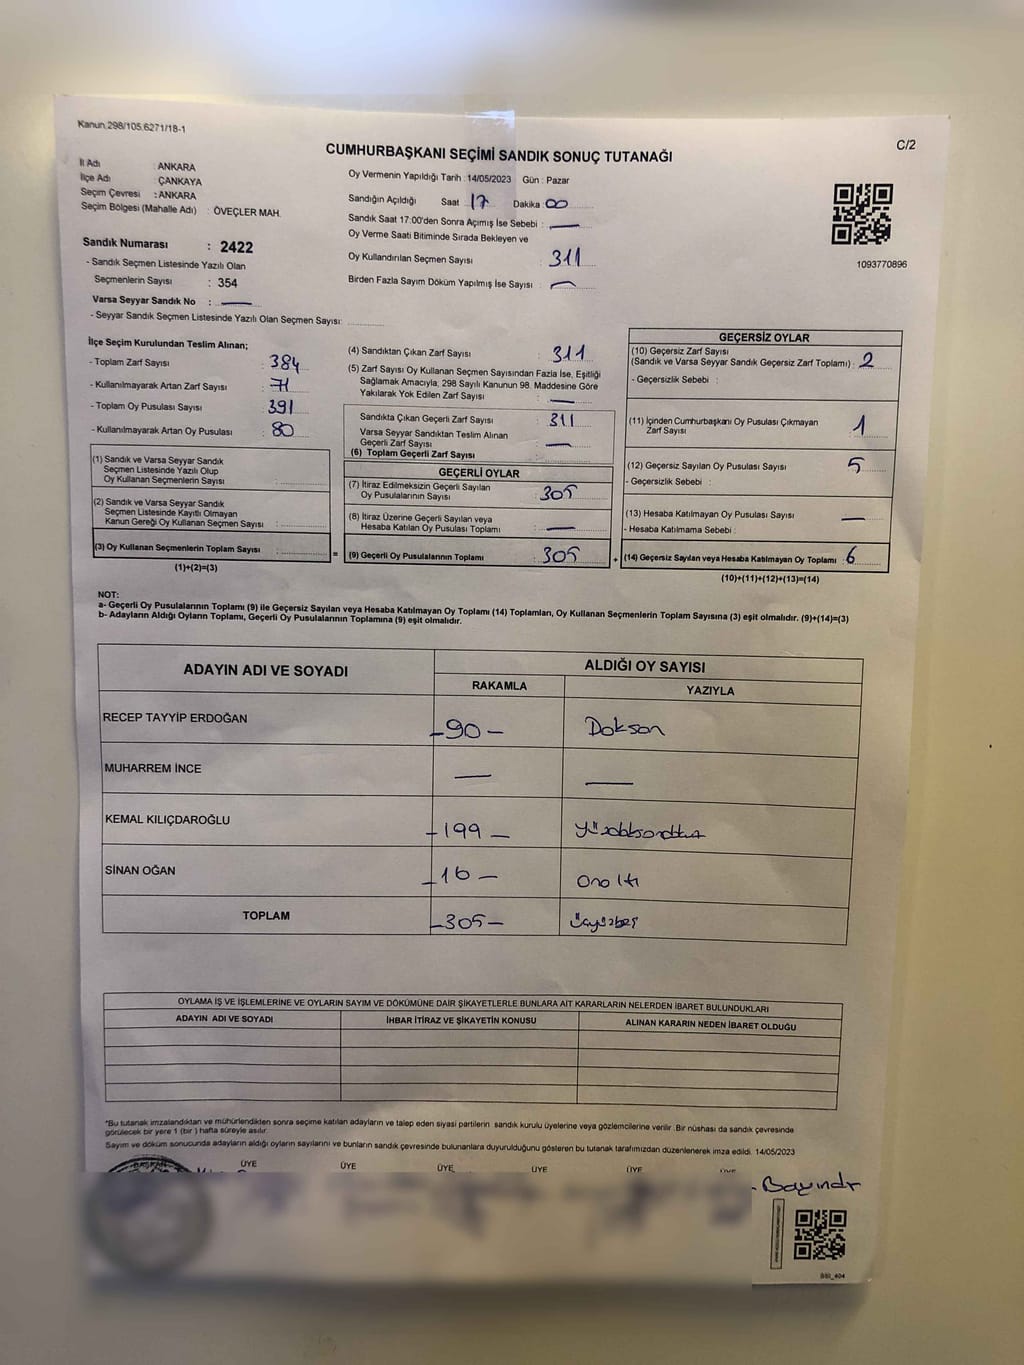 Kanun.298/105,6271/18-1
C/2
CUMHURBAŞKANI SEÇİMİ SANDIK SONUÇ TUTANAĞI
İl Adı : ANKARA
İlçe Adı : ÇANKAYA
Seçim Çevresi : ANKARA
Seçim Bölgesi (Mahalle Adı) : ÖVEÇLER MAH.
Sandık Numarası : 2422
- Sandık Seçmen Listesinde Yazılı Olan
Seçmenlerin Sayısı : 354
Varsa Seyyar Sandık No : —
- Seyyar Sandık Seçmen Listesinde Yazılı Olan Seçmen Sayısı:
Oy Vermenin Yapıldığı Tarih : 14/05/2023 Gün : Pazar
Sandığın Açıldığı Saat 17 Dakika : 00
Sandık Saat 17:00'den Sonra Açımış İse Sebebi : —
Oy Verme Saati Bitiminde Sırada Bekleyen ve
Oy Kullandırılan Seçmen Sayısı : 311
Birden Fazla Sayım Döküm Yapılmış İse Sayısı : —
1093770896
İlçe Seçim Kurulundan Teslim Alınan;
- Toplam Zarf Sayısı : 384
- Kullanılmayarak Artan Zarf Sayısı : 71
- Toplam Oy Pusulası Sayısı : 391
- Kullanılmayarak Artan Oy Pusulası : 80
(1) Sandık ve Varsa Seyyar Sandık
Seçmen Listesinde Yazılı Olup
Oy Kullanan Seçmenlerin Sayısı :
(2) Sandık ve Varsa Seyyar Sandık
Seçmen Listesinde Kayıtlı Olmayan
Kanun Gereği Oy Kullanan Seçmen Sayısı :
(3) Oy Kullanan Seçmenlerin Toplam Sayısı :
(1)+(2)=(3)
=
(4) Sandıktan Çıkan Zarf Sayısı : 311
(5) Zarf Sayısı Oy Kullanan Seçmen Sayısından Fazla İse, Eşitliği
Sağlamak Amacıyla, 298 Sayılı Kanunun 98. Maddesine Göre
Yakılarak Yok Edilen Zarf Sayısı : —
Sandıkta Çıkan Geçerli Zarf Sayısı : 311
Varsa Seyyar Sandıktan Teslim Alınan
Geçerli Zarf Sayısı : —
(6) Toplam Geçerli Zarf Sayısı :
GEÇERLİ OYLAR
(7) İtiraz Edilmeksizin Geçerli Sayılan
Oy Pusulalarının Sayısı : 305
(8) İtiraz Üzerine Geçerli Sayılan veya
Hesaba Katılan Oy Pusulası Toplamı : —
(9) Geçerli Oy Pusulalarının Toplamı : 305
+
GEÇERSİZ OYLAR
(10) Geçersiz Zarf Sayısı
(Sandık ve Varsa Seyyar Sandık Geçersiz Zarf Toplamı) : 2
- Geçersizlik Sebebi :
(11) İçinden Cumhurbaşkanı Oy Pusulası Çıkmayan
Zarf Sayısı : 1
(12) Geçersiz Sayılan Oy Pusulası Sayısı : 5
- Geçersizlik Sebebi :
(13) Hesaba Katılmayan Oy Pusulası Sayısı : —
- Hesaba Katılmama Sebebi :
(14) Geçersiz Sayılan veya Hesaba Katılmayan Oy Toplamı : 6
(10)+(11)+(12)+(13)=(14)
NOT:
a- Geçerli Oy Pusulalarının Toplamı (9) ile Geçersiz Sayılan veya Hesaba Katılmayan Oy Toplamı (14) Toplamları, Oy Kullanan Seçmenlerin Toplam Sayısına (3) eşit olmalıdır. (9)+(14)=(3)
b- Adayların Aldığı Oyların Toplamı, Geçerli Oy Pusulalarının Toplamına (9) eşit olmalıdır.
ADAYIN ADI VE SOYADI
ALDIĞI OY SAYISI
RAKAMLA YAZIYLA
RECEP TAYYİP ERDOĞAN -90- Dokson
MUHARREM İNCE — —
KEMAL KILIÇDAROĞLU -199- yüzdoksandokuz
SİNAN OĞAN -16- Onaltı
TOPLAM -305- üçyüzbeş
OYLAMA İŞ VE İŞLEMLERİNE VE OYLARIN SAYIM VE DÖKÜMÜNE DAİR ŞİKAYETLERLE BUNLARA AİT KARARLARIN NELERDEN İBARET BULUNDUKLARI
ADAYIN ADI VE SOYADI İHBAR İTİRAZ VE ŞİKAYETİN KONUSU ALINAN KARARIN NEDEN İBARET OLDUĞU
*Bu tutanak imzalandıktan ve mühürlendikten sonra seçime katılan adayların ve talep eden siyasi partilerin sandık kurulu üyelerine veya gözlemcilerine verilir. Bir nüshası da sandık çevresinde
görülecek bir yere 1 (bir) hafta süreyle asılır.
Sayım ve döküm sonucunda adayların aldığı oyların sayılarını ve bunların sandık çevresinde bulunanlara duyurulduğunu gösteren bu tutanak tarafımızdan düzenlenerek imza edildi. 14/05/2023
BAŞKAN ÜYE ÜYE ÜYE ÜYE ÜYE ÜYE
Bayındır